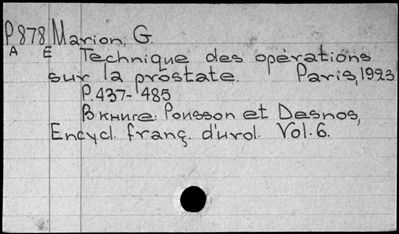 P878 Marion, G.
A E Technique des opérations
sur la prostate. Paris, 1923
P.437-485
В книге: Pousson et Desnos,
Encycl. franç. d'urol. Vol. 6.